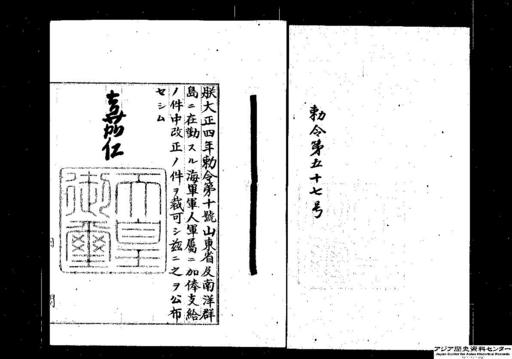 勅令第五十七号
朕大正四年勅令第十號山東省及南洋群
島ニ在勤スル海軍軍人軍屬ニ加俸支給
ノ件中改正ノ件ヲ裁可シ茲ニ之ヲ公布
セシム
嘉仁
天皇
御璽
内
閣
アジア歴史資料センター
Japan Center for Asian Historical Records